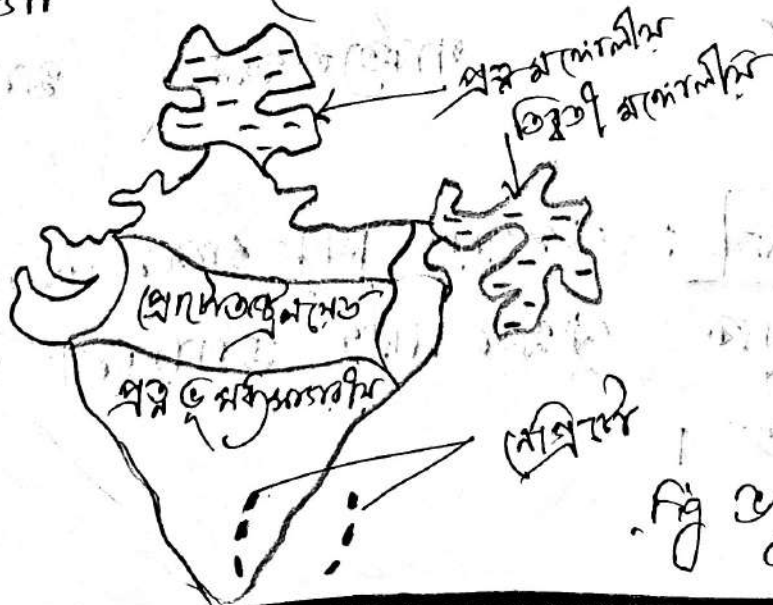 প্রত্ন মঙ্গোলীয়
তিব্বতী মঙ্গোলীয়
প্রোটোঅস্ট্রালয়েড
প্রত্ন ভূমধ্যসাগরীয়
নেগ্রিটো